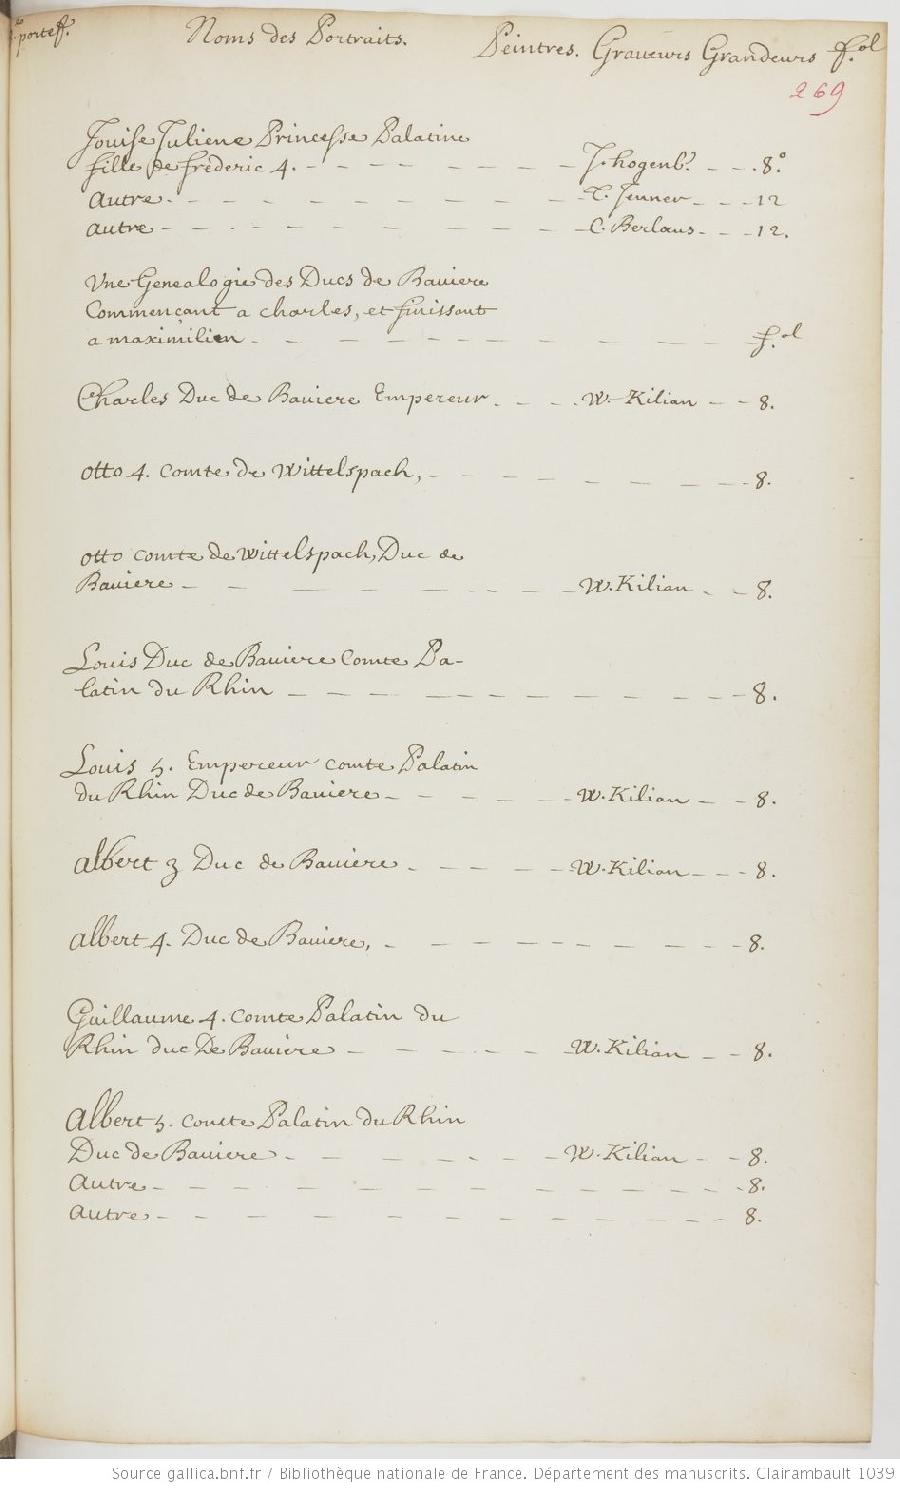 portef. Noms des Portraits. Peintres. Graveurs Grandeurs f.ol
269
Louise Juliene Princesse Palatine
fille de frederic 4. - - - - - - - J. hogenb.? - - 8.°
Autre - - - - - - - - Jenner - - - 12
autre - - - - - - - - C. Berlaus - - - 12.
Une Genealogie des Ducs de Baviere
Commençant a charles, et finissant
a maximilien - - - - - - - - - - f.ol
Charles Duc de Baviere Empereur - - - W. Kilian - - 8.
otto 4. Comte de Wittelspach, - - - - - - - 8.
otto comte de Wittelspach, Duc de
Baviere - - - - - - - W. Kilian - - 8.
Louis Duc de Baviere Comte Pa-
latin du Rhin - - - - - - - - - - 8.
Louis 5. Empereur comte Palatin
du Rhin Duc de Baviere - - - - - W. Kilian - - 8.
albert 3 Duc de Baviere - - - - - W. Kilian - - - 8.
albert 4. Duc de Baviere, - - - - - - - - 8.
Guillaume 4. comte Palatin du
Rhin duc De Baviere - - - - - W. Kilian - - 8.
Albert 5. comte Palatin du Rhin
Duc de Baviere - - - - - - W. Kilian - - 8.
Autre - - - - - - - - - - - 8.
Autre - - - - - - - - - - - 8.
Source gallica.bnf.fr / Bibliothèque nationale de France. Département des manuscrits. Clairambault 1039